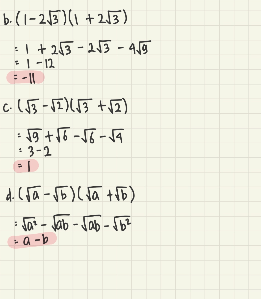 b. (1-2√3)(1 + 2√3)
= 1 + 2√3 - 2√3 - 4√9
= 1 - 12
= -11
c. (√3 - √2)(√3 + √2)
= √9 + √6 - √6 - √4
= 3 - 2
= 1
d. (√a - √b)(√a + √b)
= √a² - √ab - √ab - √b²
= a - b